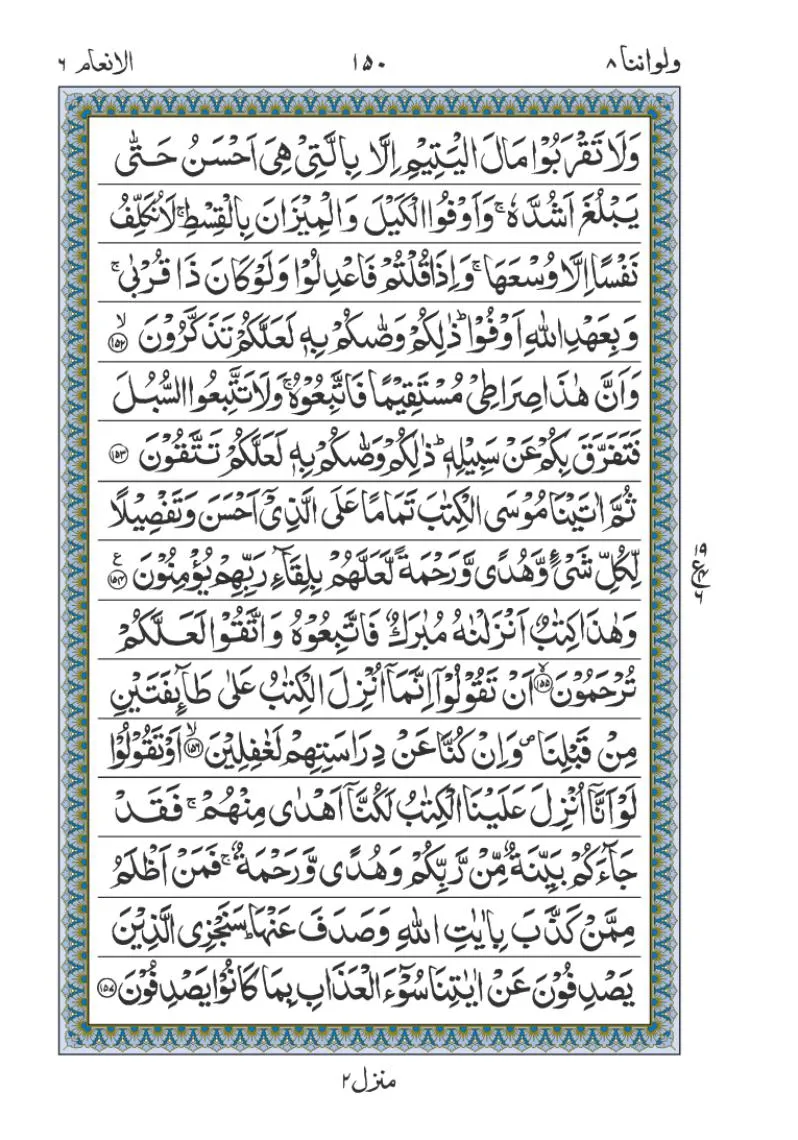 ولواننا ۸ ۱۵۰ الانعام ۶
وَلَا تَقْرَبُوْا مَالَ الْيَتِيْمِ اِلَّا بِالَّتِيْ هِيَ اَحْسَنُ حَتّٰى
يَبْلُغَ اَشُدَّهٗ ۚ وَاَوْفُوا الْكَيْلَ وَالْمِيْزَانَ بِالْقِسْطِ ۚ لَا نُكَلِّفُ
نَفْسًا اِلَّا وُسْعَهَا ۚ وَاِذَا قُلْتُمْ فَاعْدِلُوْا وَلَوْ كَانَ ذَا قُرْبٰى ۚ
وَبِعَهْدِ اللّٰهِ اَوْفُوْا ؕ ذٰلِكُمْ وَصّٰىكُمْ بِهٖ لَعَلَّكُمْ تَذَكَّرُوْنَ ۙ ﴿۱۵۲﴾
وَاَنَّ هٰذَا صِرَاطِيْ مُسْتَقِيْمًا فَاتَّبِعُوْهُ ۚ وَلَا تَتَّبِعُوا السُّبُلَ
فَتَفَرَّقَ بِكُمْ عَنْ سَبِيْلِهٖ ؕ ذٰلِكُمْ وَصّٰىكُمْ بِهٖ لَعَلَّكُمْ تَتَّقُوْنَ ﴿۱۵۳﴾
ثُمَّ اٰتَيْنَا مُوْسَى الْكِتٰبَ تَمَامًا عَلَى الَّذِيْۤ اَحْسَنَ وَتَفْصِيْلًا
لِّكُلِّ شَيْءٍ وَّهُدًى وَّرَحْمَةً لَّعَلَّهُمْ بِلِقَآءِ رَبِّهِمْ يُؤْمِنُوْنَ ﴿۱۵۴﴾ ع
۱۹ ع ۴ ۶
وَهٰذَا كِتٰبٌ اَنْزَلْنٰهُ مُبٰرَكٌ فَاتَّبِعُوْهُ وَاتَّقُوْا لَعَلَّكُمْ
تُرْحَمُوْنَ ۙ ﴿۱۵۵﴾ اَنْ تَقُوْلُوْۤا اِنَّمَاۤ اُنْزِلَ الْكِتٰبُ عَلٰى طَآىِٕفَتَيْنِ
مِنْ قَبْلِنَا ۪ وَاِنْ كُنَّا عَنْ دِرَاسَتِهِمْ لَغٰفِلِيْنَ ۙ ﴿۱۵۶﴾ اَوْ تَقُوْلُوْا
لَوْ اَنَّاۤ اُنْزِلَ عَلَيْنَا الْكِتٰبُ لَكُنَّاۤ اَهْدٰى مِنْهُمْ ۚ فَقَدْ
جَآءَكُمْ بَيِّنَةٌ مِّنْ رَّبِّكُمْ وَهُدًى وَّرَحْمَةٌ ۚ فَمَنْ اَظْلَمُ
مِمَّنْ كَذَّبَ بِاٰيٰتِ اللّٰهِ وَصَدَفَ عَنْهَا ؕ سَنَجْزِي الَّذِيْنَ
يَصْدِفُوْنَ عَنْ اٰيٰتِنَا سُوْٓءَ الْعَذَابِ بِمَا كَانُوْا يَصْدِفُوْنَ ﴿۱۵۷﴾
منزل ۲